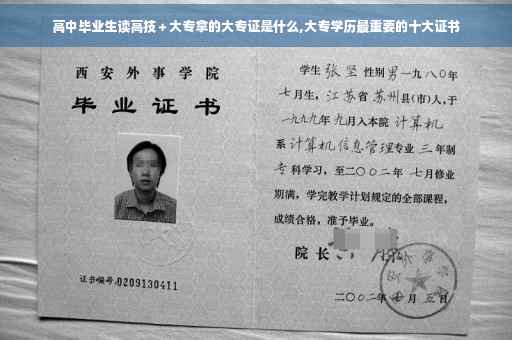 高中毕业生读高技+大专拿的大专证是什么,大专学历最重要的十大证书
西安外事学院
毕业证书
证书编号:0209130411
学生 张坚 性别 男 一九八〇年
七月生,江苏省 苏州县(市)人,于
一九九九年九月入本院 计算机
系 计算机信息管理专业 三 年制
专科学习,至二〇〇二年 七月修业
期满,学完教学计划规定的全部课程,
成绩合格,准予毕业。
院长
二〇〇二年 月五日